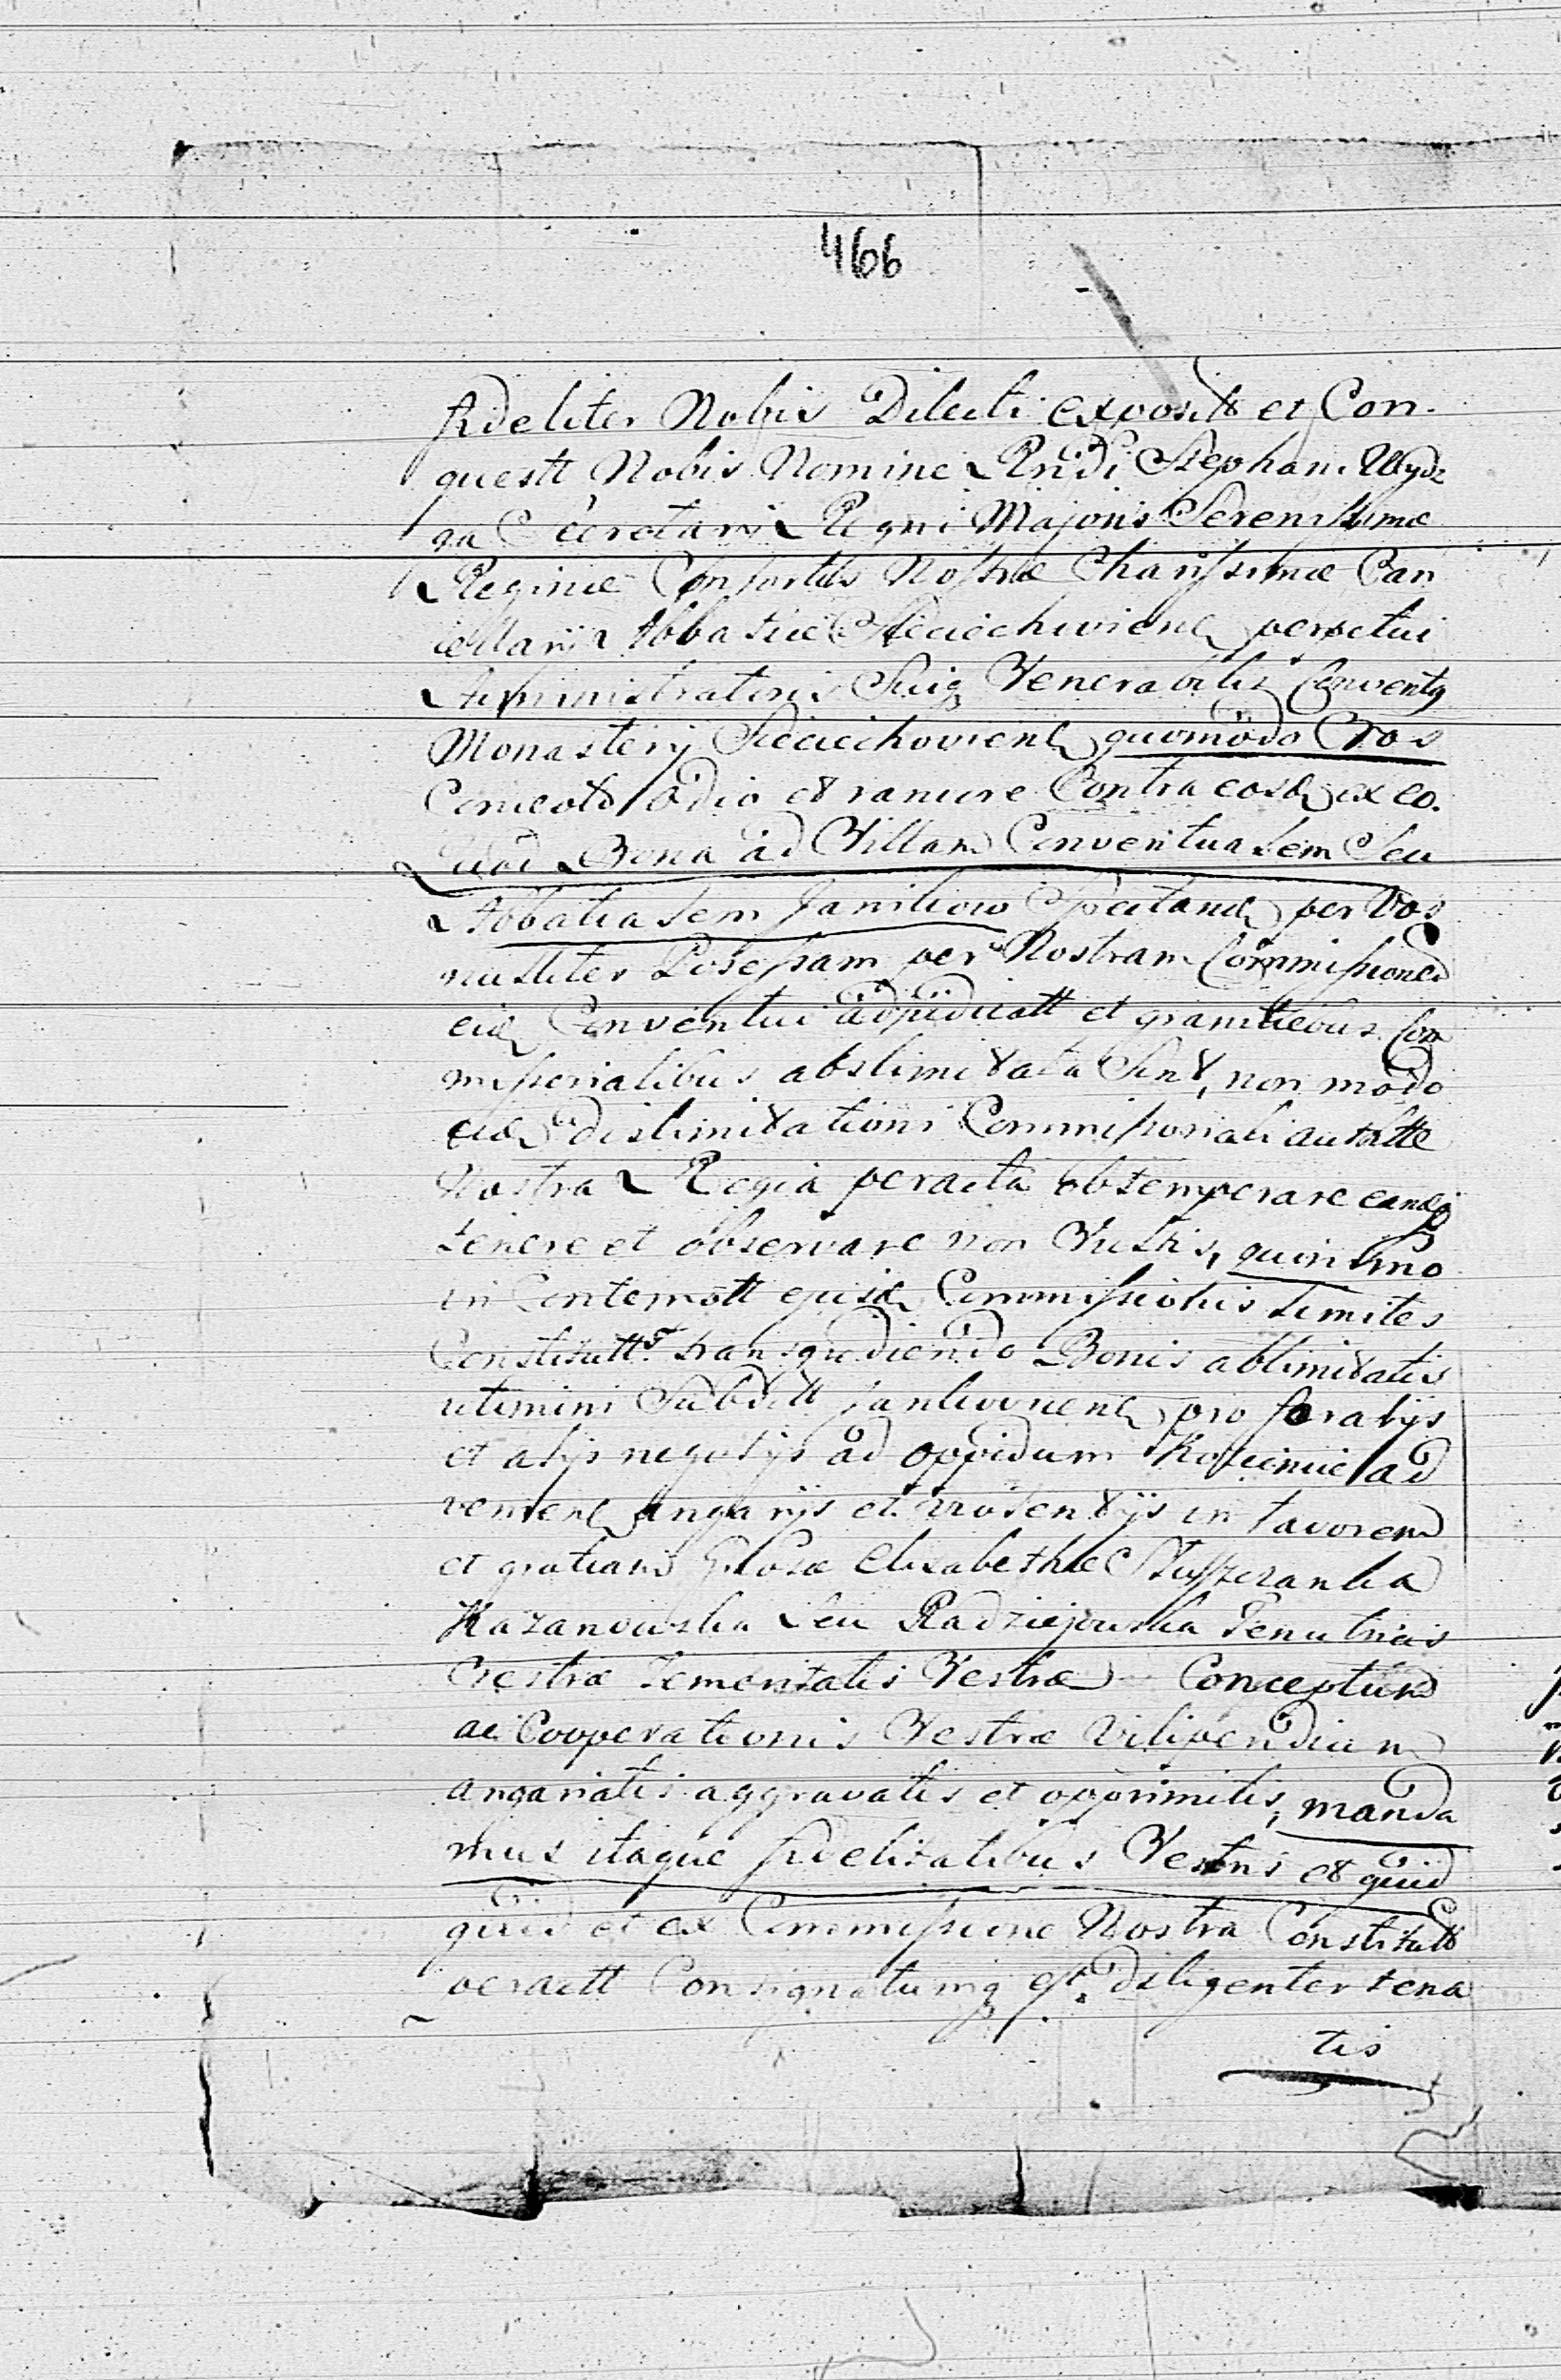 466
fideliter Nobis Dilecti exposit et Con-
questt Nobis Nomine Rndi Stephani Wydz
ga Secretarij Regni Majoris Serenissimæ
Reginæ Consortis Nostræ Charissimæ Can
cellarij Abbatiæ Sieciechoviens perpetui
Administratoris Suiq Venerabilis Conventq
Monasterij Sieciechoviens quomodo Vos
Concepto odio et rancore Contra eosd ex eo.
Quod Bona ad Villam Conventualem Seu
Abbatialem Janikow Spectans per Vos
nulliter Posessam per Nostram Commissioned
eid Conventui adjudicatt et granitiebus Com
missorialibus abslimitata Sint, non modo
eid dislimitationi Commissoriali authtte
Nostra Regia peracta obtemperare eamq
tenere et observare non Vultis, quin imo
in Contemptt ejusd Commissionis limites
Constitutt transgrediendo Bonis ablimitatis
utimini Subditt Janikoviens pro foralijs
et alijs negotijs ad oppidum Kozienice ad
veniens angarijs et in favorem
et gratiam Elisabethæ
Kazanowska Seu Radziejowska Tenutricis
Vestræ temeritatis Vestræ Conceptum
ac Cooperationis Vestræ vilipendium
angariatis aggravatis et opprimitis, manda
mus itaque fidelitatibus Vestris et quid
quid et ex Commissione Nostra Constitutt
peractt Consignatumq est. diligenter tena
tis